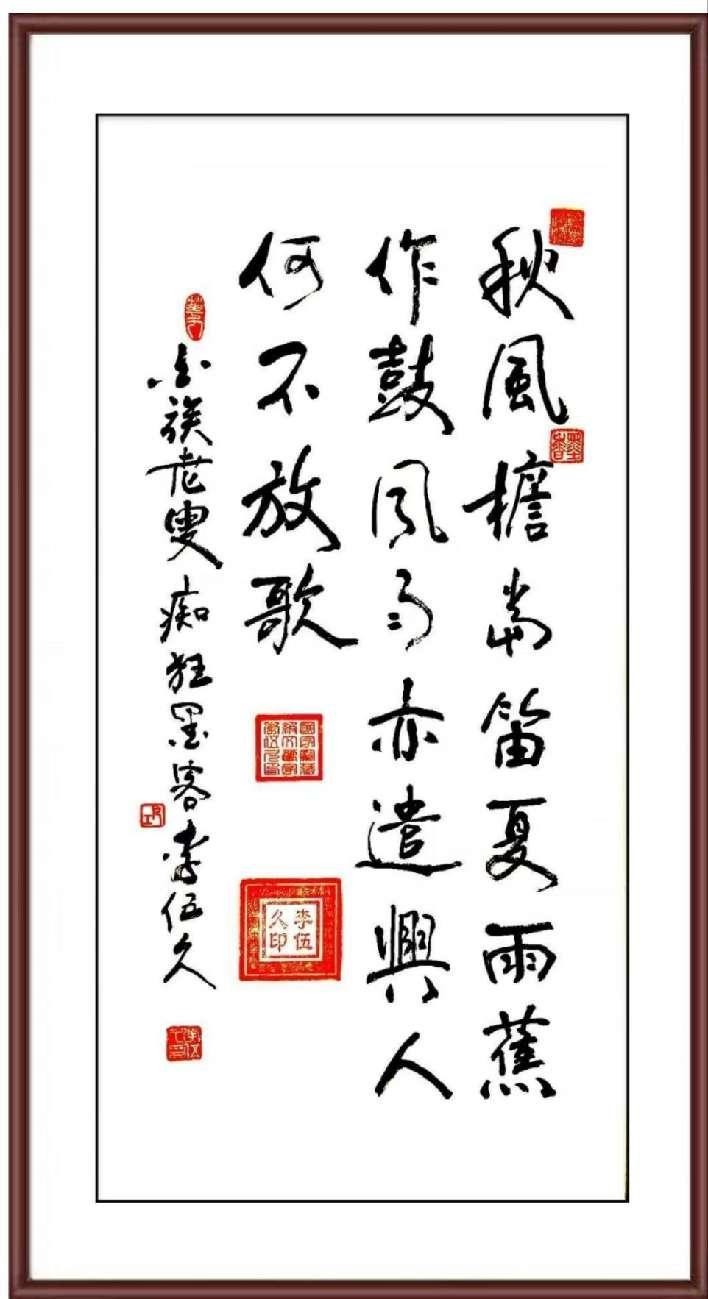 秋風檐當笛夏雨蕉
作鼓風雨亦遣興人
何不放歌
族老叟痴狂墨客李伍久
李伍
久印